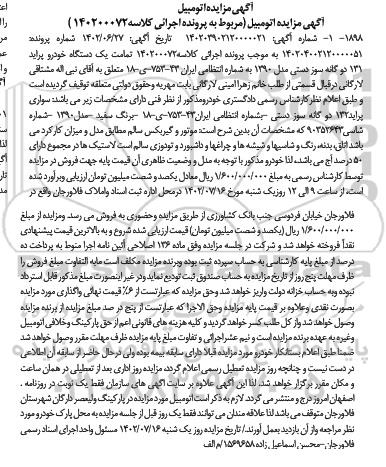 آگهی مزایده اتومبیل
آگهی مزایده اتومبیل (مربوط به پرونده اجرائی کلاسه ۱۴۰۲۰۰۰۷۲ )
۱۸۹۸- ۱- شماره آگهی: ۱۴۰۲۰۳۹۰۲۱۲۰۰۰۰۲۱ تاریخ آگهی: ۱۴۰۲/۰۶/۲۷ شماره پرونده:
۱۴۰۲۰۴۰۰۲۱۲۰۰۰۰۵۱ به موجب پرونده اجرائی کلاسه ۱۴۰۲۰۰۰۷۲ تمامت یک دستگاه خودرو پراید
۱۳۱ دو گانه سوز دستی مدل ۱۳۹۰ به شماره انتظامی ایران ۴۳-۷۵۳ی۱۸ متعلق به آقای نبی اله مشتاقی
لارگانی در قبال قسمتی از طلب خانم زهرا امینی لارگانی بابت مهریه و حقوق دولتی متعلقه توقیف گردیده است
و طبق اعلام نظر کارشناس رسمی دادگستری خودرو مذکور از نظر فنی دارای مشخصات زیر می باشد: سواری
پراید ۱۳۲ دو گانه سوز دستی -شماره انتظامی ایران ۴۳-۷۵۳ی۱۸ -برنگ سفید -مدل ۱۳۹۰ -شماره
شاسی ۹۰۳۵۲۶۴۳ که مشخصات آن بدین شرح است: موتور و گیربکس سالم مطابق مدل و میزان کارکرد می
باشد اتاق، بدنه، رنگ و شاسیها و شیشه ها و چراغها و داشبورد و تودوزی سالم است لاستیک ها در مجموع دارای
۵۰ درصد آج می باشد، لذا خودرو مذکور با توجه به مدل و وضعیت ظاهری آن قیمت پایه جهت فروش در مزایده
توسط کارشناس رسمی به مبلغ ۱/۶۰۰/۰۰۰/۰۰۰ ریال معادل یکصد و شصت میلیون تومان ارزیابی و برآورد شده
است، از ساعت ۹ الی ۱۲ روز یک شنبه مورخ ۱۴۰۲/۰۷/۱۶ در محل اداره ثبت اسناد و املاک فلاورجان واقع در
فلاورجان خیابان فردوسی جنب بانک کشاورزی از طریق مزایده و حضوری به فروش می رسد. و مزایده از مبلغ
۱/۶۰۰/۰۰۰/۰۰۰ ریال (یکصد و شصت میلیون تومان) قیمت ارزیابی شده شروع و به بالاترین قیمت پیشنهادی
نقداً فروخته خواهد شد و شرکت در جلسه مزایده وفق ماده ۱۳۶ اصلاحی آئین نامه اجرا منوط به پرداخت ده
درصد از مبلغ پایه کارشناسی به حساب سپرده ثبت بوده و برنده مزایده مکلف است مابه التفاوت مبلغ فروش را
ظرف مهلت پنج روز از تاریخ مزایده به حساب صندوق ثبت تودیع نماید و در غیر اینصورت مبلغ مذکور قابل استرداد
نبوده و به حساب خزانه دولت واریز خواهد شد و حق مزایده که عبارتست از ۶٪ قیمت نهائی واگذاری مورد مزایده
بصورت نقدی و علاوه بر قیمت پایه مزایده و حق الاجرا که عبارتست از پنج در صد مبلغ مزایده از برنده مزایده
وصول خواهد شد واز کل طلب کسر خواهد گردید و کلیه هزینه های قانونی اعم از حق پارکینگ و خلافی اتومبیل
وغیره به عهده برنده مزایده است و نیم عشر اجرائی و تفاوت مبلغ پایه مزایده ظرف مهلت مقرر وصول خواهد شد
ضمنا طبق اعلام بستانکار خودرو مورد مزایده قبلا دارای سابقه بیمه بوده ولی در حال حاضر از سابقه آن اطلاعی
در دست نیست و چنانچه روز مزایده تعطیل رسمی اعلام گردد، مزایده روز اداری بعد از تعطیلی در همان ساعت
و مکان مقرر برگزار خواهد شد. لذا این آگهی علاوه بر سایت آگهی های سازمان فقط یک نوبت در روزنامه .
اصفهان امروز درج و منتشر می گردد. لازم به ذکر است اتومبیل مورد مزایده در پارکینگ ولیعصر دارگان شهرستان
فلاورجان متوقف می باشد لذا علاقه مندان می توانند فقط یک روز قبل از جلسه مزایده به محل پارک خودرو مورد
نظر مراجعه و از آن بازدید بعمل آورند./ تاریخ مزایده روز یک شنبه ۱۴۰۲/۰۷/۱۶ مسئول واحد اجرای اسناد رسمی
فلاورجان- محسن اسماعیل زاده ۱۵۶۹۶۵۸/م الف